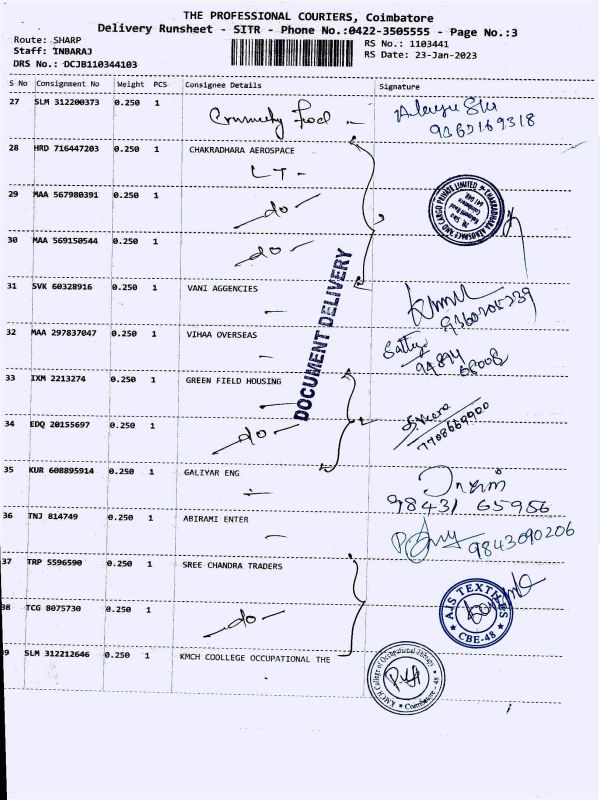 THE PROFESSIONAL COURIERS, Coimbatore
Delivery Runsheet - SITR - Phone No.:0422-3505555 - Page No.:3
Route: SHARP
RS No.: 1103441
Staff: INBARAJ
RS Date: 23-Jan-2023
DRS No.: DCJB110344103
S No Consignment No Weight PCS Consignee Details Signature
27 SLM 312200373 0.250 1 Community Food
9362169318
28 HRD 716447203 0.250 1 CHAKRADHARA AEROSPACE
LT -
CHAKRADHARA AEROSPACE AND CARGO PRIVATE LIMITED
29 MAA 567980391 0.250 1
-do-
30 MAA 569150544 0.250 1
-do-
DOCUMENT DELIVERY
31 SVK 60328916 0.250 1 VANI AGGENCIES
9360205239
32 MAA 297837047 0.250 1 VIHAA OVERSEAS
Sattya
94894 68008
33 IXM 2213274 0.250 1 GREEN FIELD HOUSING
34 EDQ 20155697 0.250 1 -do-
7708669900
35 KUR 608895914 0.250 1 GALIYAR ENG
98431 65956
36 TNJ 814749 0.250 1 ABIRAMI ENTER
9843090206
37 TRP 5596590 0.250 1 SREE CHANDRA TRADERS
AJS TEXTILES
CBE-48
38 TCG 8075730 0.250 1 -do-
39 SLM 312212646 0.250 1 KMCH COOLLEGE OCCUPATIONAL THE
KMCH College of Occupational Therapy
Coimbatore - 48